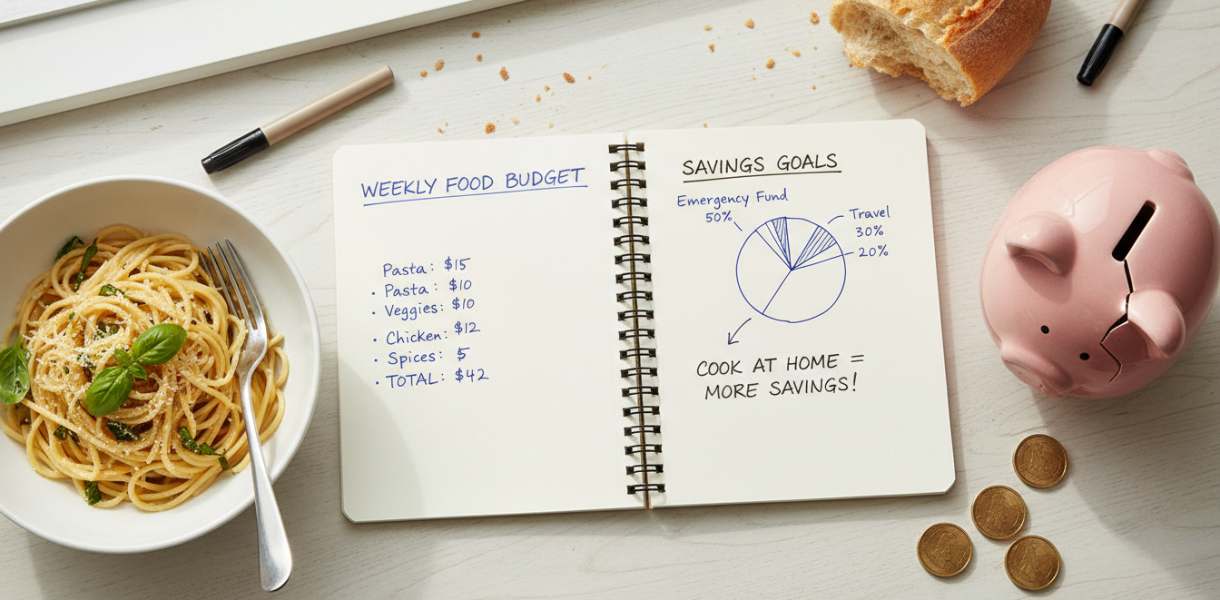 WEEKLY FOOD BUDGET
Pasta: $15
· Pasta: $10
· Veggies: $10
· Chicken: $12
· Spices: 5
· TOTAL: $42
SAVINGS GOALS
Emergency Fund
50%
Travel
30%
20%
COOK AT HOME =
MORE SAVINGS!